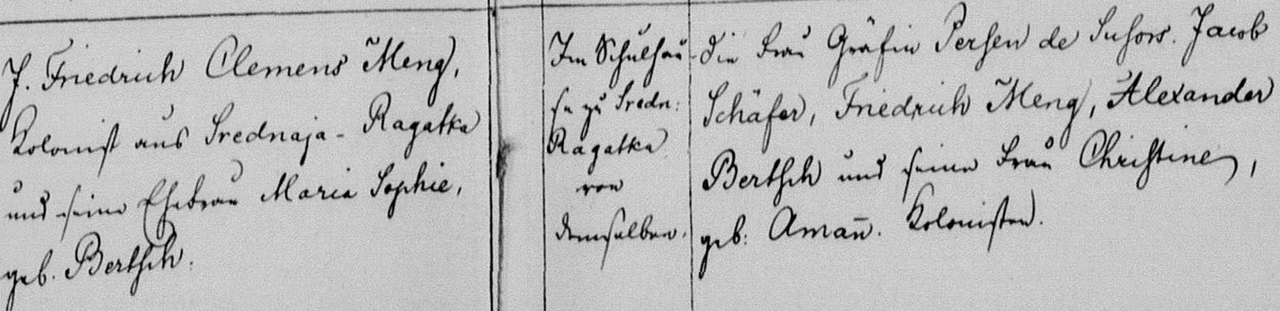 J. Friedrich Clemens Meng,
Kolonist aus Srednaja-Ragatka
und seine Ehefrau Maria Sophie,
geb. Bertsch.
Im Schulhau-
se zu Sredn:
Ragatka
von
demselben.
die Frau Gräfin Persen de Jacob
Schäfer, Friedrich Meng, Alexander
Bertsch und seine Frau Christine,
geb: Aman̄. Kolonisten.